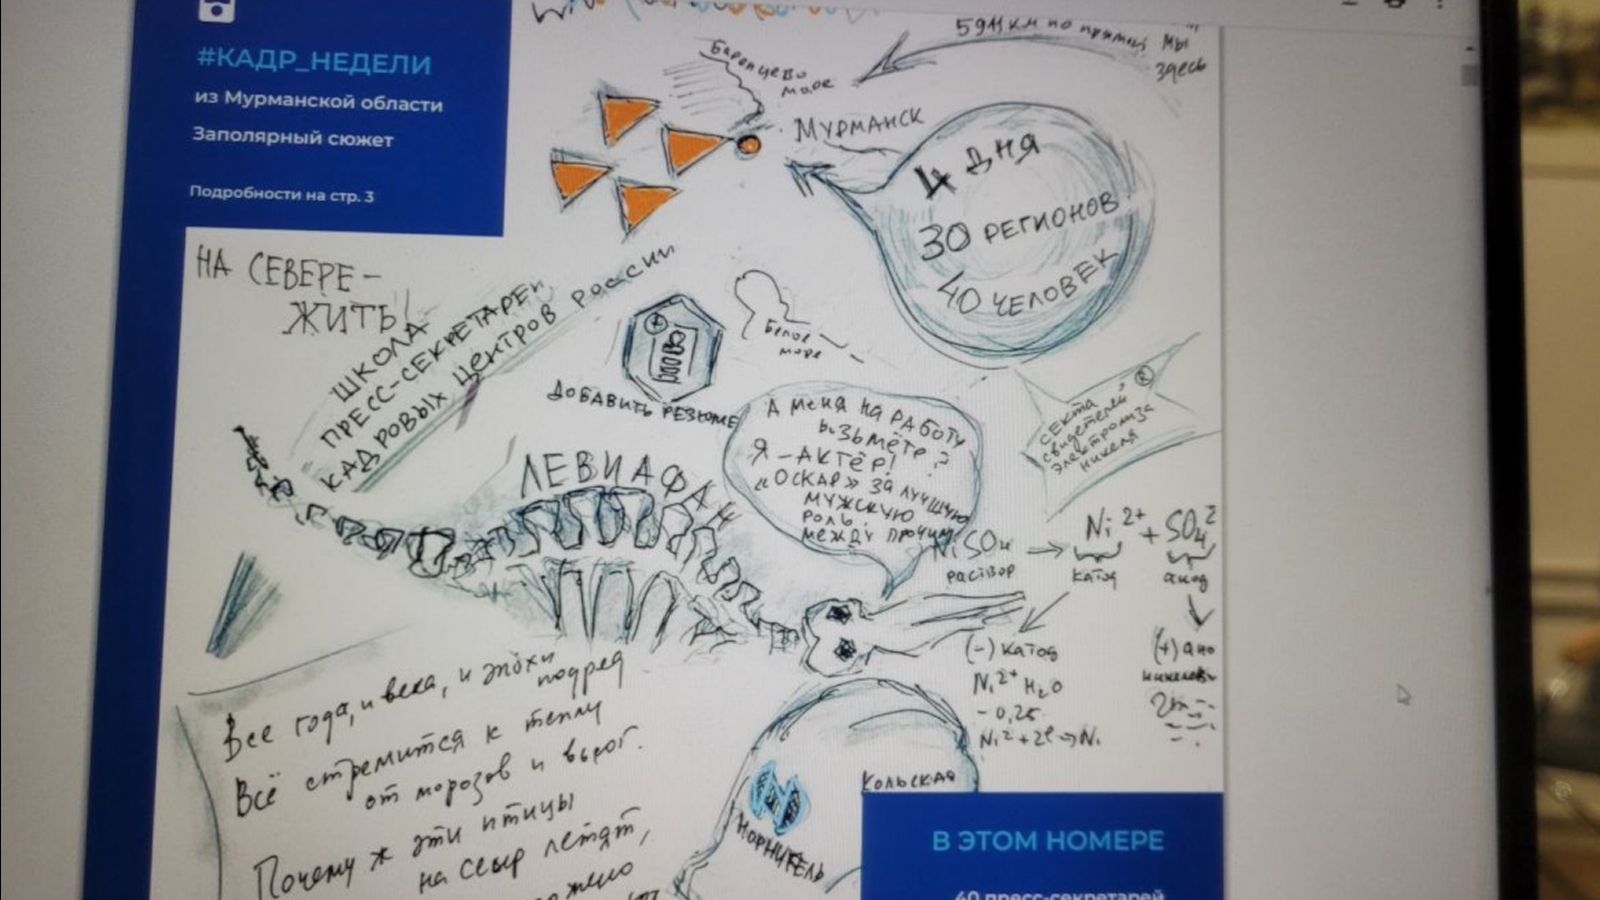 #КАДР_НЕДЕЛИ
из Мурманской области
Заполярный сюжет
Подробности на стр. 3
5911 км по прямой
мы
здесь
Баренцево
море
МУРМАНСК
4 ДНЯ
30 РЕГИОНОВ
40 ЧЕЛОВЕК
НА СЕВЕРЕ –
ЖИТЬ!
ШКОЛА
ПРЕСС-СЕКРЕТАРЕЙ
КАДРОВЫХ ЦЕНТРОВ РОССИИ
ДОБАВИТЬ РЕЗЮМЕ
Белое
море
СЕКТА
свидетелей
электролиза
никеля
ЛЕВИАФАН
А МЕНЯ НА РАБОТУ
ВОЗЬМЁТЕ?
Я – АКТЁР!
«ОСКАР» ЗА ЛУЧШУЮ
МУЖСКУЮ
РОЛЬ,
МЕЖДУ ПРОЧИМ!
NiSO4 → Ni 2+ + SO4 2
раствор
катод
анод
(-) катод
Ni2+ H2O
-0,25
Ni2+2e→Ni
(+) ано
Все года, и века, и эпохи
подряд
Всё стремится к теплу
от морозов и вьюг.
Почему ж эти птицы
на север летят,
КОЛЬСКАЯ
НОРНИКЕЛЬ
В ЭТОМ НОМЕРЕ
40 пресс-секретарей